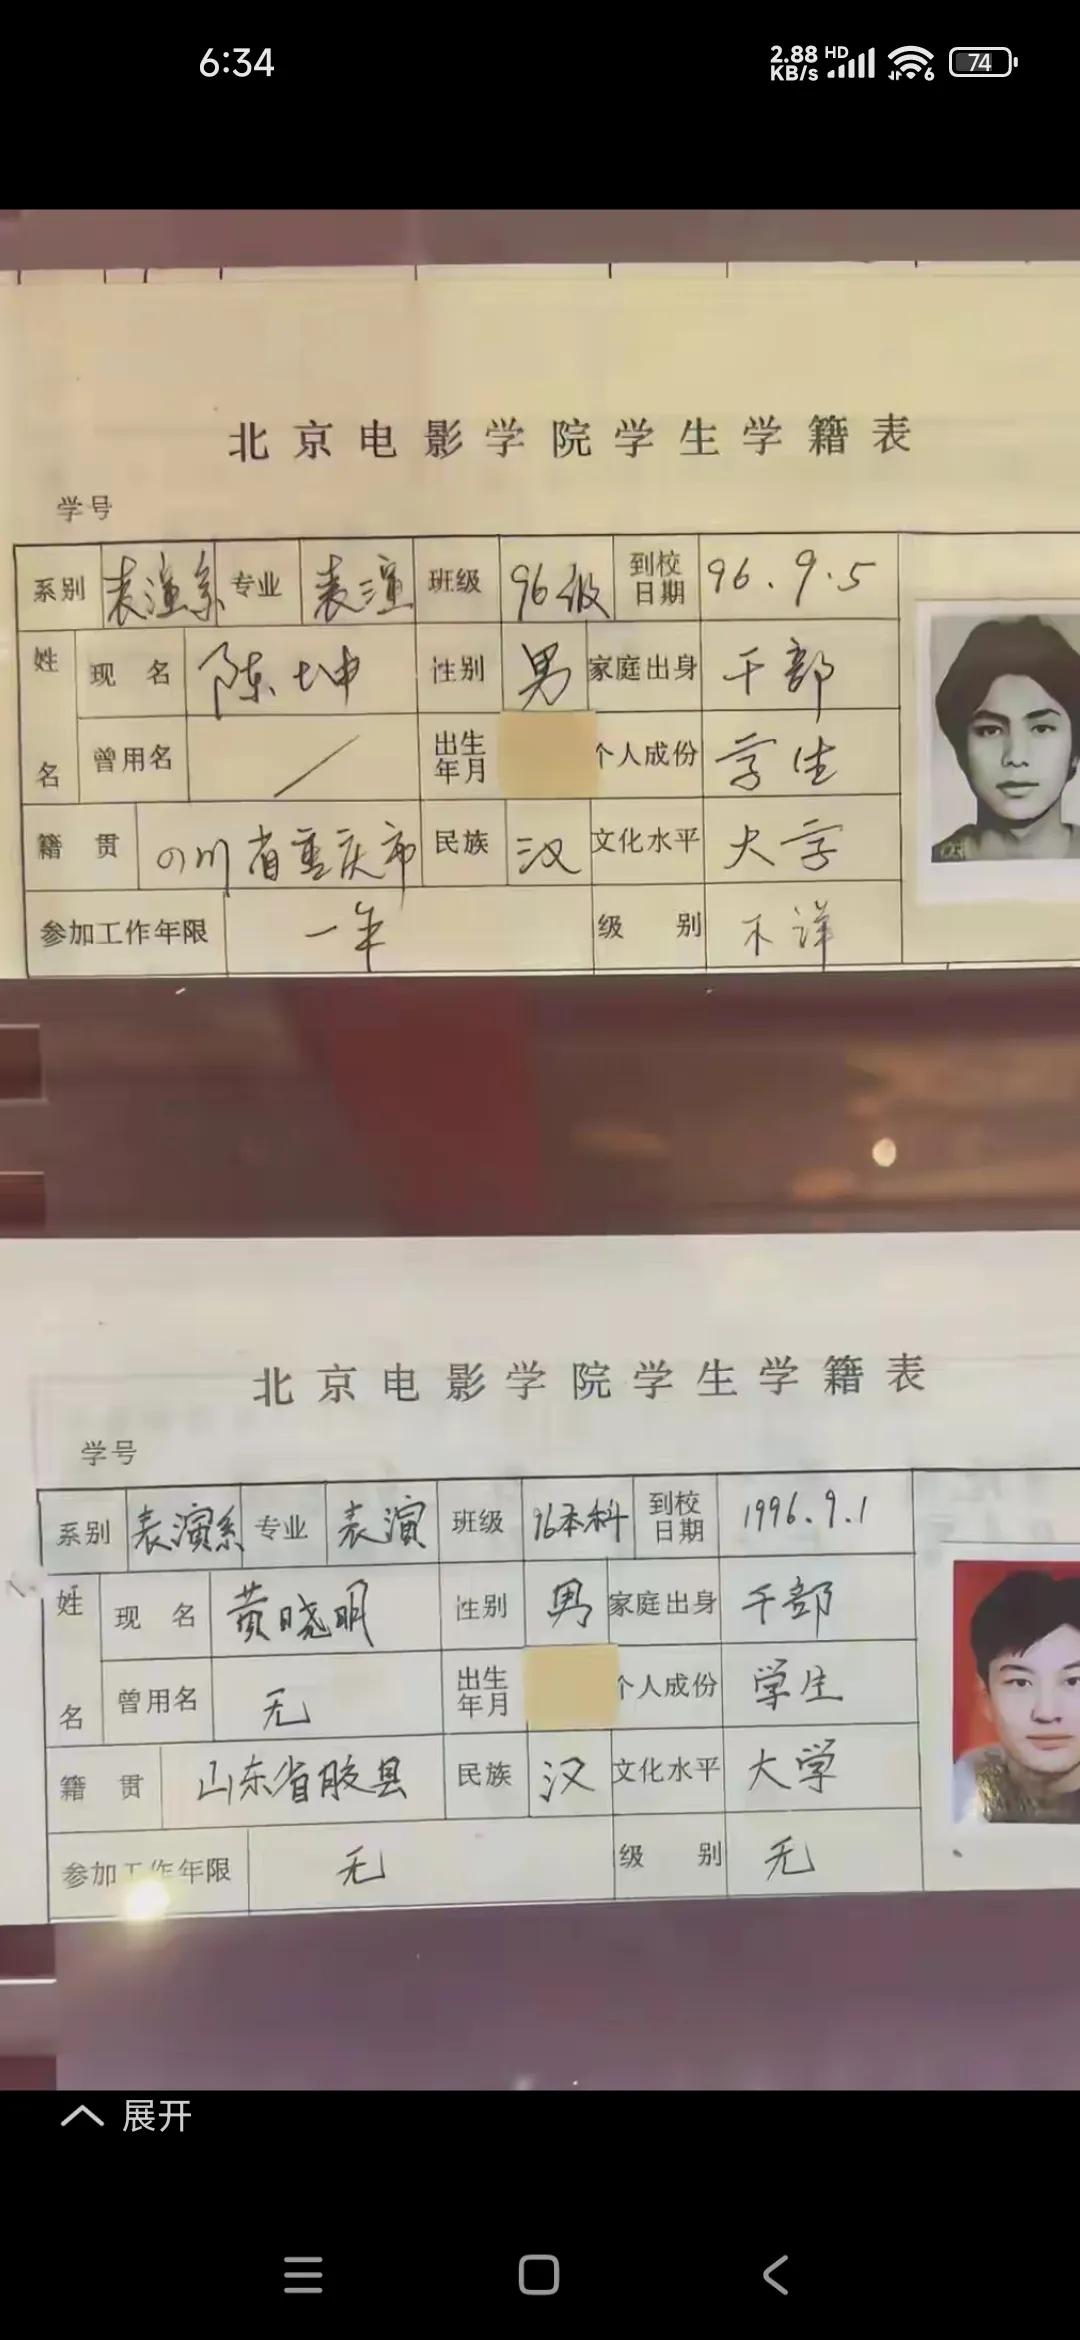 6:34
2.88 KB/s HD 6 74
北京电影学院学生学籍表
学号
系别 表演系 专业 表演 班级 96级 到校日期 96.9.5
姓名 现名 陈坤 性别 男 家庭出身 干部
曾用名 / 出生年月 个人成份 学生
籍贯 四川省重庆市 民族 汉 文化水平 大学
参加工作年限 一年 级别 不详
北京电影学院学生学籍表
学号
系别 表演系 专业 表演 班级 96本科 到校日期 1996.9.1
姓名 现名 黄晓明 性别 男 家庭出身 干部
曾用名 无 出生年月 个人成份 学生
籍贯 山东省胶县 民族 汉 文化水平 大学
参加工作年限 无 级别 无
展开